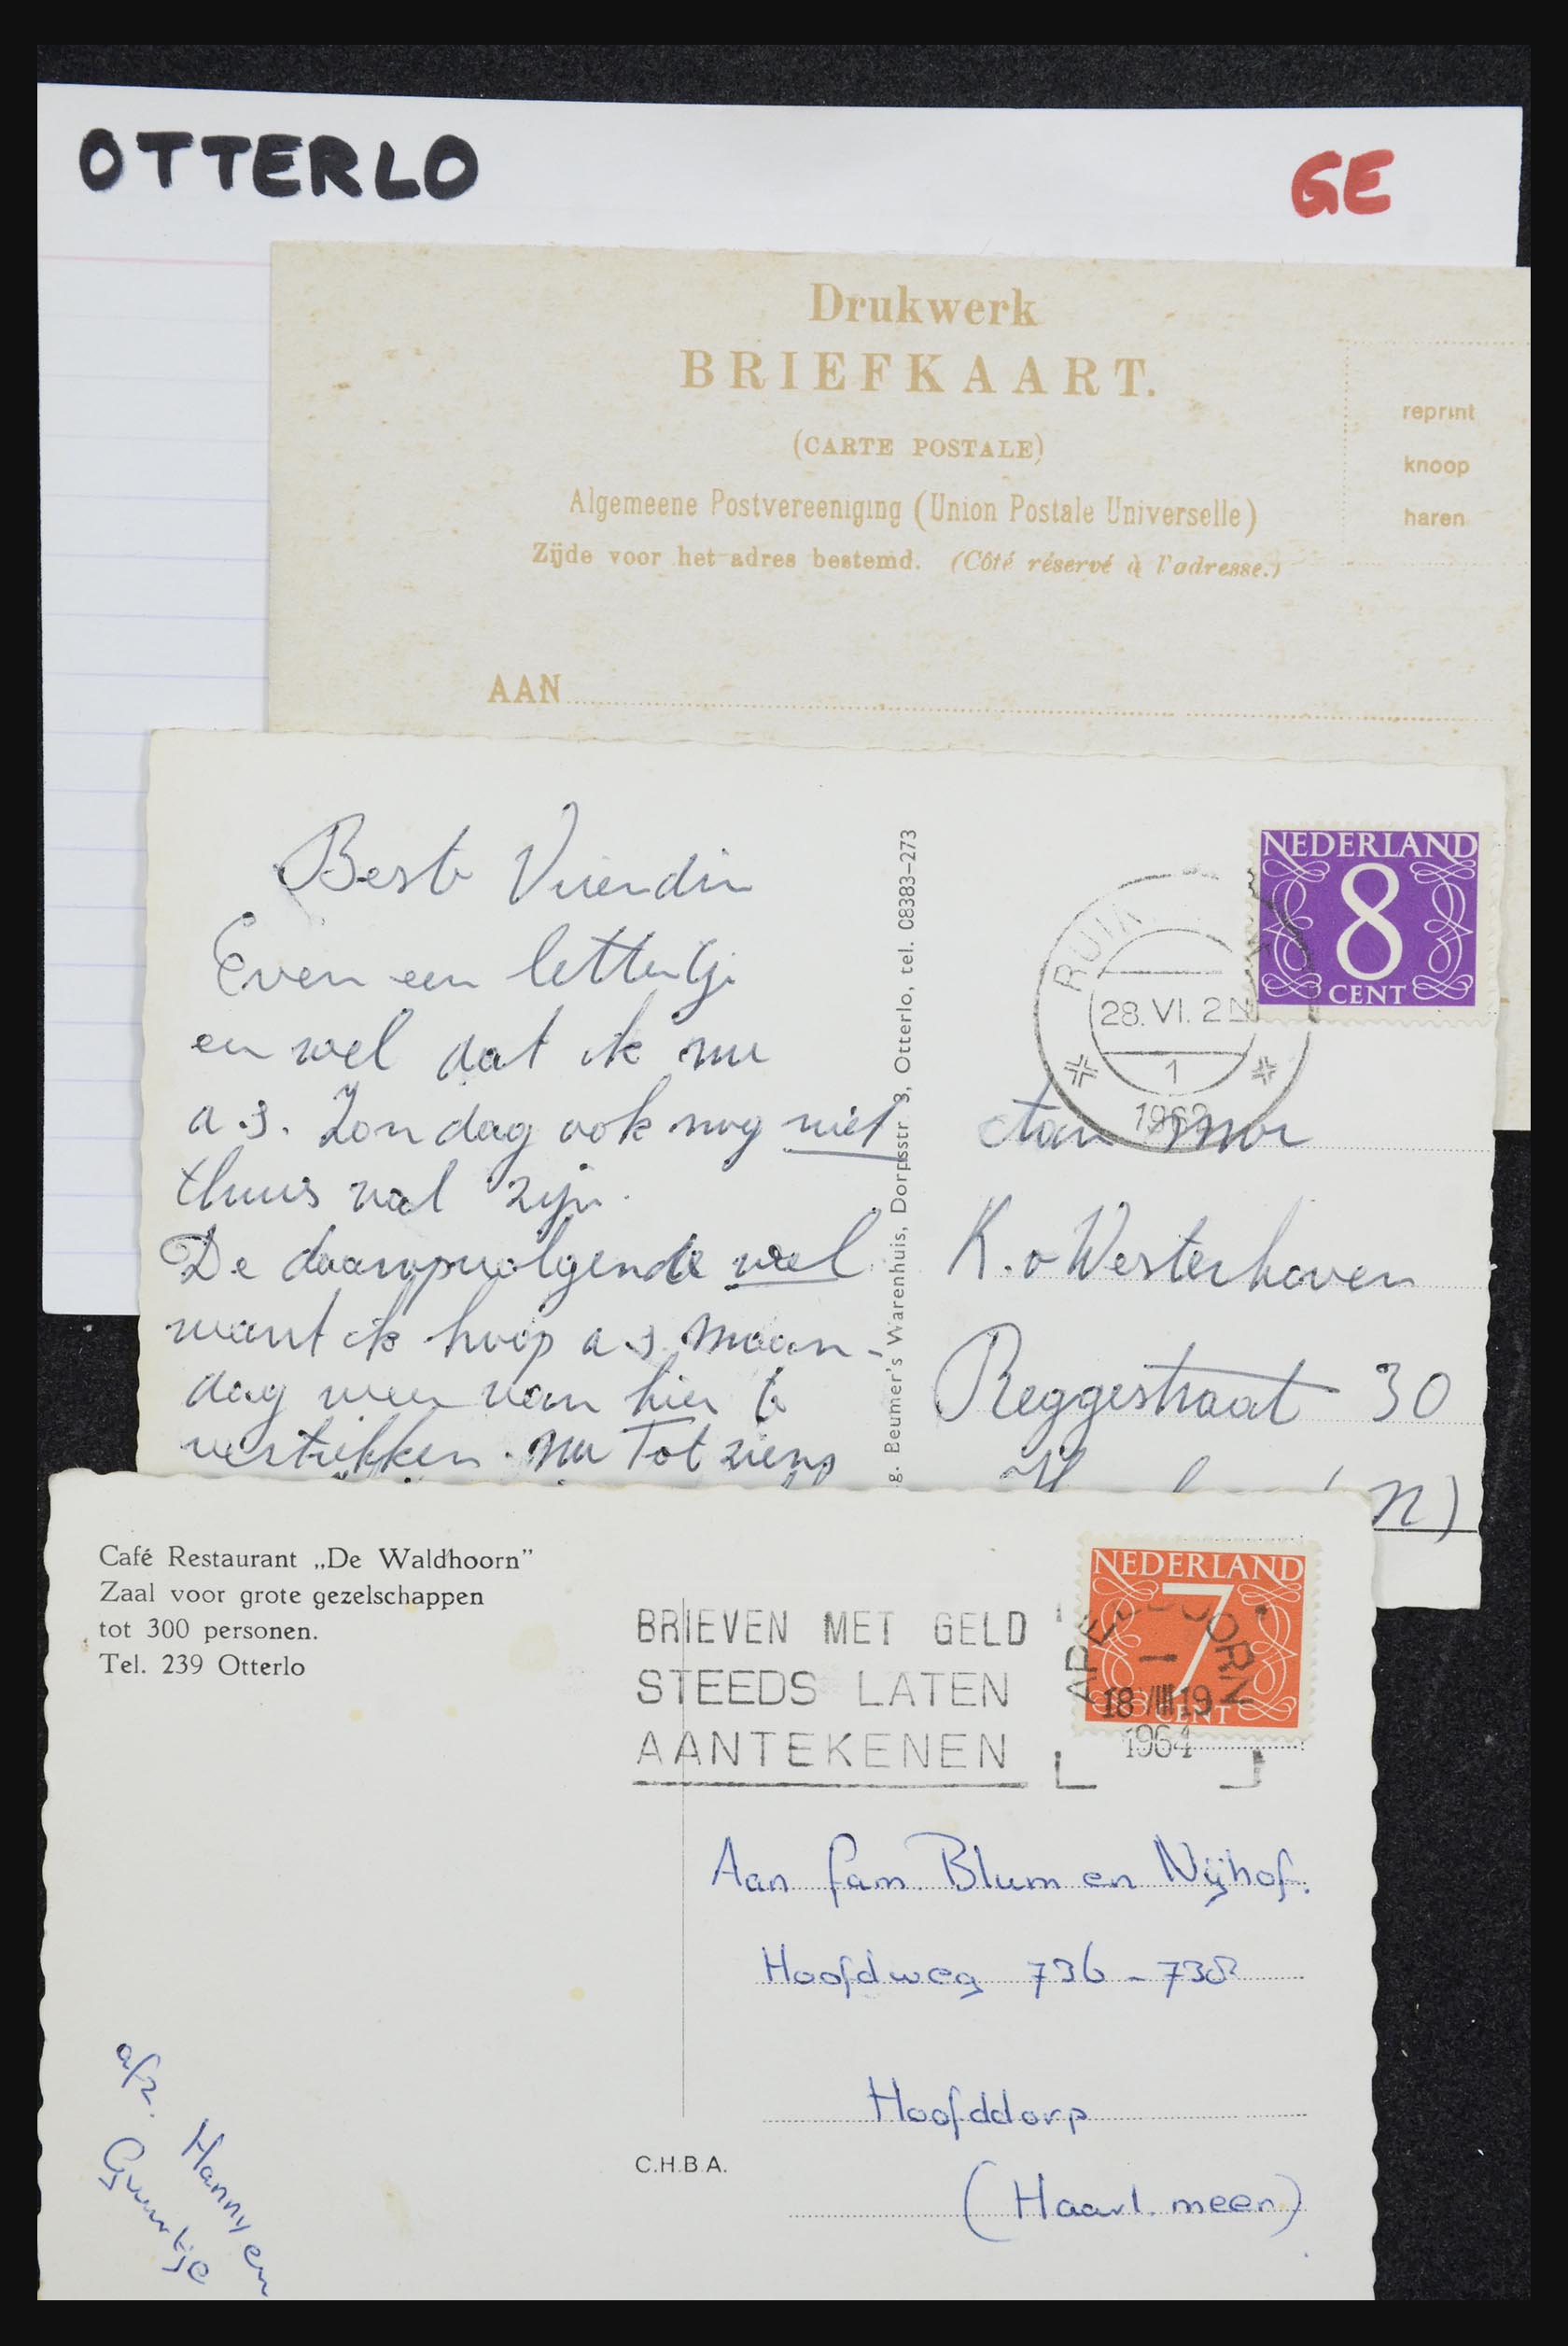 OTTERLO
GE
Drukwerk
BRIEFKAART.
(CARTE POSTALE)
Algemeene Postvereeniging (Union Postale Universelle)
Zijde voor het adres bestemd. (Côté réservé à l'adresse.)
reprint
knoop
haren
AAN
Beste Vriendin
Even een lettertje
en wel dat ik nu
a.s. Zondag ook nog niet
thuis zal zijn.
De daaropvolgende wel
want ik hoop a.s. maan-
dag weer van hier te
vertrekken. nu Tot ziens
g. Beumer's Warenhuis, Dorpsstr 3, Otterlo, tel. 08383-273
NEDERLAND
8
CENT
28.VI.2N
1
Aan
K. v Westerhoven
Reggestraat 30
N)
Café Restaurant „De Waldhoorn”
Zaal voor grote gezelschappen
tot 300 personen.
Tel. 239 Otterlo
BRIEVEN MET GELD
STEEDS LATEN
AANTEKENEN
NEDERLAND
7
CENT
APELDOORN
18 VIII 19
1964
Aan fam. Blum en Nijhof.
Hoofdweg 736 - 738
Hoofddorp
(Haarl. meer)
C.H.B.A.
afz. Hanny en
Geertje